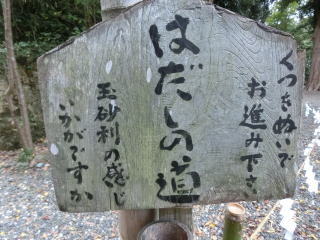 くつをぬいで
お進み下さい
はだしの道
玉砂利の感じ
いかがですか